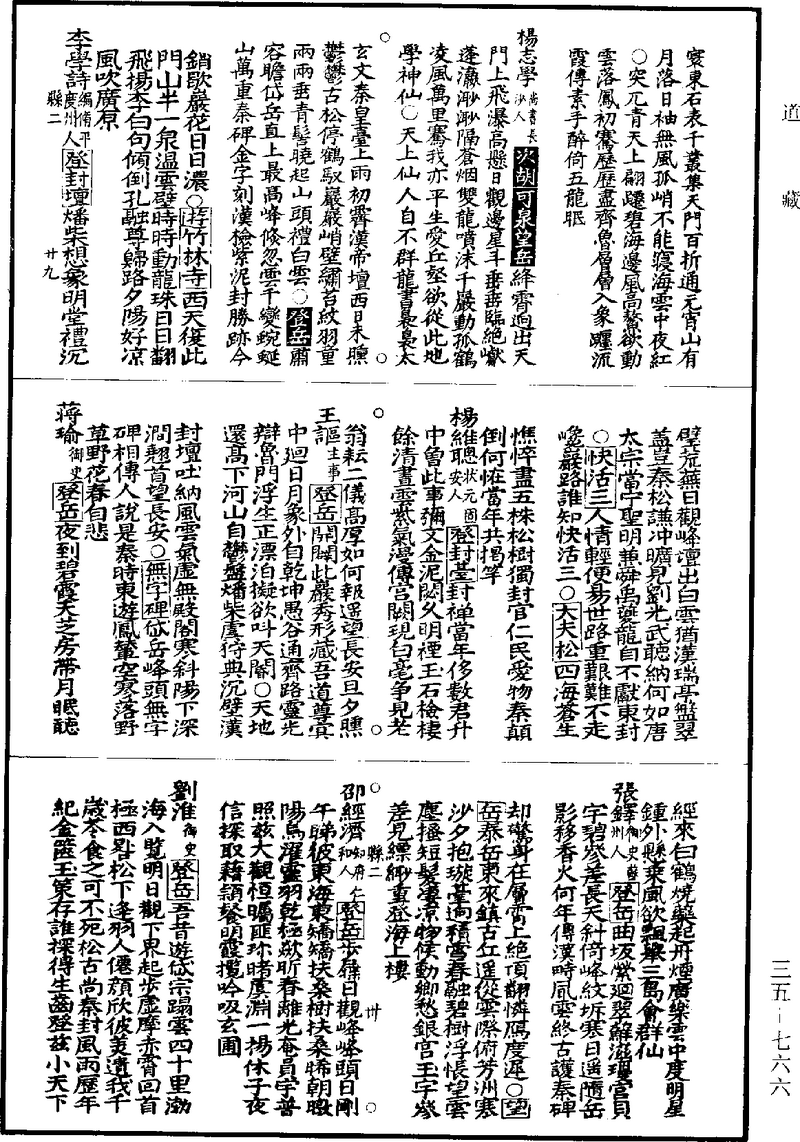 道藏
寰東石表千叢集天門百折通元宵山有
月落日袖無風孤峭不能寢海雲中夜紅
○突兀青天上翩躚碧海邊風高鰲欲動
雲落鳳初騫歷歷盡齊魯層層入象躔流
霞傳素手醉倚五龍眠
楊志學尚書長沙人次胡可泉望岳絳霄迥出天
門上飛瀑高懸日觀邊星斗垂垂臨絶巘
蓬瀛渺渺隔蒼烟雙龍噴沫千巖動孤鶴
凌風萬里騫我亦平生愛丘壑欲從此地
學神仙○天上仙人自不群龍書裊裊太
玄文秦皇臺上雨初霽漢帝壇西日未曛
鬱鬱古松停鶴馭巖巖峭壁繡苔紋羽童
兩兩垂青髻曉起山頭禮白雲○登岳肅
容瞻岱岳直上最高峰倏忽雲千變蜿蜒
山萬重秦碑金字刻漢檢紫泥封勝跡今
銷歇巖花日日濃○遊竹林寺西天後此
門山半一泉温雲壁時時動龍珠日日翻
飛揚李白句傾倒孔融尊歸路夕陽好凉
風吹廣原
李學詩編脩平度州人登封壇燔柴想象明堂禮沉
縣二
廿九
璧荒無日觀峰壇出白雲猶漢瑞亭盤翠
蓋是秦松謙冲曠見劉光武聽納何如唐
太宗當宁聖明兼舜禹夔龍自不獻東封
○快活三人情輕便易世路重艱難不走
巉巖路誰知快活三○大夫松四海蒼生
憔悴盡五株松樹獨封官仁民愛物秦顛
倒何怪當年共揭竿
楊維聰狀元固安人登封臺封禪當年侈數君升
中曾此事彌文金泥閟久明煙玉石檢棲
餘清晝雲紫氣灣傳宫闕現白毫争見老
翁耘二儀高厚如何報遥望長安旦夕曛
王謳主事登岳開闢此巖秀形藏吾道尊寘
中迴日月象外自乾坤愚谷通齊路靈光
辯魯門浮生正漂泊擬欲叫天閽○天地
還高下河山自鬱盤燔柴虞狩典沉璧漢
封壇吐納風雲氣虚無殿閣寒斜陽下深
澗翹首望長安○無字碑岱岳峰頭無字
碑相傳人說是秦時東遊鳳輦空寥落野
草野花春自悲
蔣瑜御史登岳夜到碧霞天芝房帶月眠聽
經來白鶴燒藥起丹煙廣樂雲中度明星
鍾外懸乘風欲飄舉三島會群仙
張鐸御史曹州人登岳曲坂縈迴翠觧滋環宫貝
字碧參差長天斜倚峰紋坼寒日遥隨岳
影移香火何年傳漢畤風雲終古護秦碑
却驚身在層霄上絶頂翻憐鴈度遲○望
岳泰岳東來鎮古丘遥從雲際俯芳洲寒
沙夕抱璇臺迥積雪春融碧樹浮悵望雲
塵搔短髮凄凉物候動鄉愁銀宫玉宇參
差見縹緲重登海上樓
邵經濟知府仁和人登岳步屧日觀峰峰頭日剛
縣二
卅
午睇彼東海東矯矯扶桑樹扶桑晞朝暾
陽烏濯靈羽乾極歘昕春離光奄員宇普
照兹大觀恒矚匪外睹虞淵一揚休子夜
信探取藉頴餐明霞攬吟吸玄圃
劉淮御史登岳吾昔遊岱宗蹋雲四十里渤
海入覽明日觀下界起步虚摩赤霄回首
極西晷松下逢羽人僊顔欣彼美遺我千
歲苓食之可不死松古尚秦封風雨歷年
紀金篋玉策存誰探得生齒登兹小天下
三五—七六六